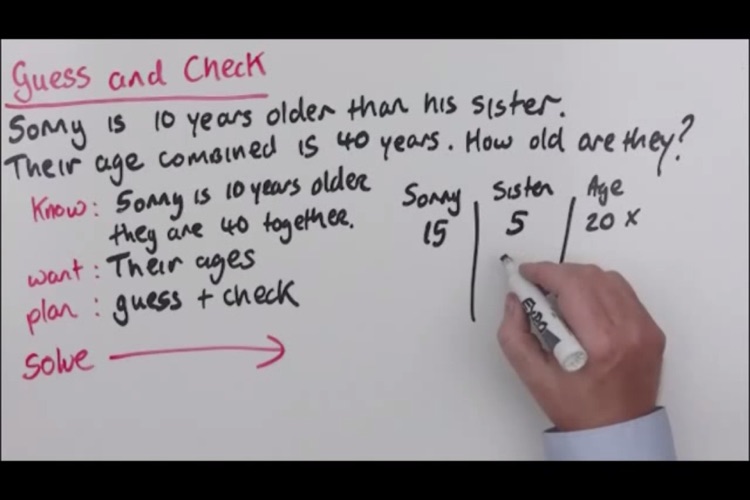 Guess and Check
Sonny is 10 years older than his sister.
Their age combined is 40 years. How old are they?
Know: Sonny is 10 years older
they are 40 together.
want: Their ages
plan: guess + check
Solve
Sonny Sister Age
15 5 20 x
EXPO